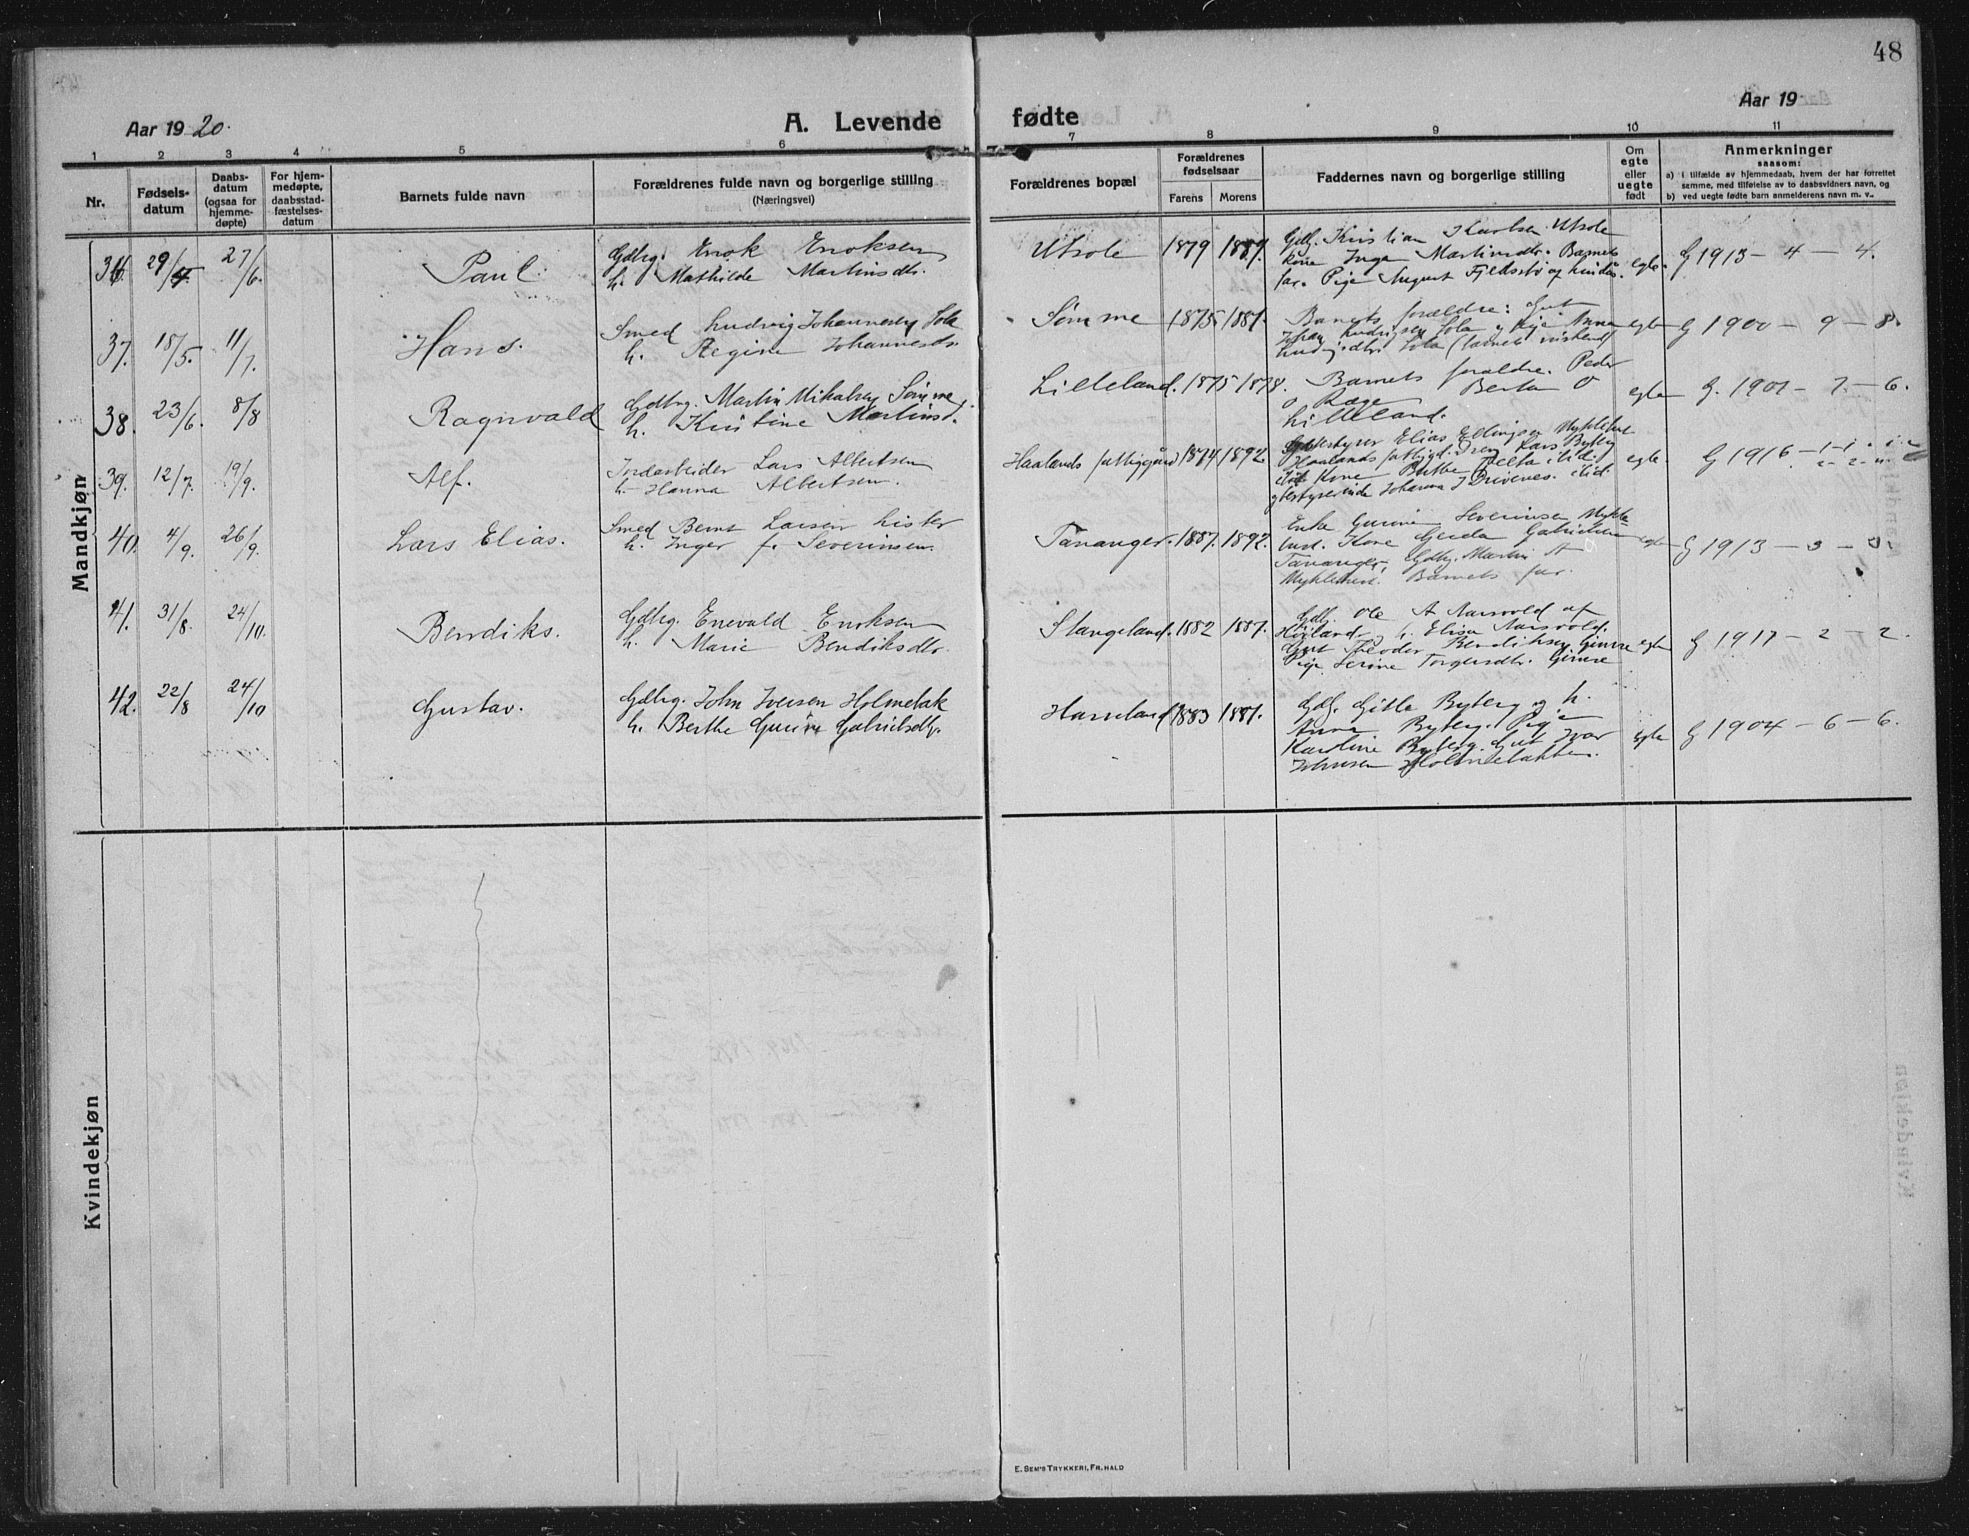 48
Aar 1920.
A. Levende fødte
Aar 19
1 2 3 4 5 6 7 8 9 10 11
Nr.
Fødsels-
datum
Daabs-
datum
(ogsaa for
hjemme-
døpte)
For hjem-
medøpte,
daabsstad-
fæstelses-
datum
Barnets fulde navn
Forældrenes fulde navn og borgerlige stilling
(Næringsvei)
Forældrenes bopæl
Forældrenes
fødselsaar
Farens Morens
Faddernes navn og borgerlige stilling
Om
egte
eller
uegte
født
Anmerkninger
saasom:
a) i tilfælde av hjemmedaab, hvem der har forrettet
semme, med tilføielse av to daabsvidners navn, og
b) ved uegte fødte barn anmelderens navn m. v..
Mandkjøn
36. 29/4 27/6. Paul. Gdbrg. Enok Enoksen
h. Mathilde Martinsdtr.
Utsole 1879 1889.
Gdbr. Kristian Karlsen Utsole
Kone Inga Martinsdtr. Barnets
far. Pige August Fjeldstø
egte. G 1913 - 4 - 4.
37. 18/5. 11/7. Hans. Smed Ludvig Johannesen Sola
h. Regine Johannesdtr.
Sømme 1875 1881.
Barnets forældre: Gut
Johan Ludvigsen Sola og Pige Anna
Ludvigsdtr. Sola
egte G 1900 - 9 - 8.
38. 23/6. 8/8 Ragnvald Gdbrg. Martin Mikalsen Sømme
h. Kristine Martinsd.
Lilleland. 1875 1878.
Barnets forældre. Peder
O Ræge Berta O
Lilleland.
egte G. 1901 - 7 - 6.
39. 12/7. 19/9. Alf. Jordarbeider Lars Albertsen
h. Hanna Albertsen.
Haalands fattiggård 1874 1892
Gbestyrer Elias Ellingsen Myklebust
Haalands fattigd. Dreng Lars Byberg
Kone Berthe
Gbestyrerinde Johanna
egte. G 1916 - 1 - 1
40. 4/9. 26/9. Lars Elias. Smed Bernt Larsen Lister
h. Inger f. Severinsen.
Tananger. 1887. 1892.
Enke Gurine Severinsen Mykle-
bust. Kone Gerda Gabrielsen
Tananger, Gdbr. Martin A
Myklebust. Barnets far.
egte G 1913 - 3 - 3.
41. 31/8. 24/10. Bendiks. Gdbrg. Enevald Enoksen
h. Marie Bendiksdtr.
Stangeland. 1882 1887.
Gdbr. Ole A Aarsvold af
Høiland, h. Elisa Aarsvold.
Gut Theodor Bendiksen Gimre
Pige Serine Torgersdtr. Gimre
egte G 1917 - 2 - 2.
42. 22/8 24/10 Gustav. Gdbrg. John Iversen Holmetak
h. Berthe Gurine Gabrielsdtr.
Harreland 1883 1881.
Gdbr. Gitle Byberg og h.
Anna Byberg. Pige
Karoline Byberg. Gut Ivar
Johnsen Holmetakken.
egte G 1904 - 6 - 6.
Kvindekjøn
E. SEM'S TRYKKERI, FR.HALD